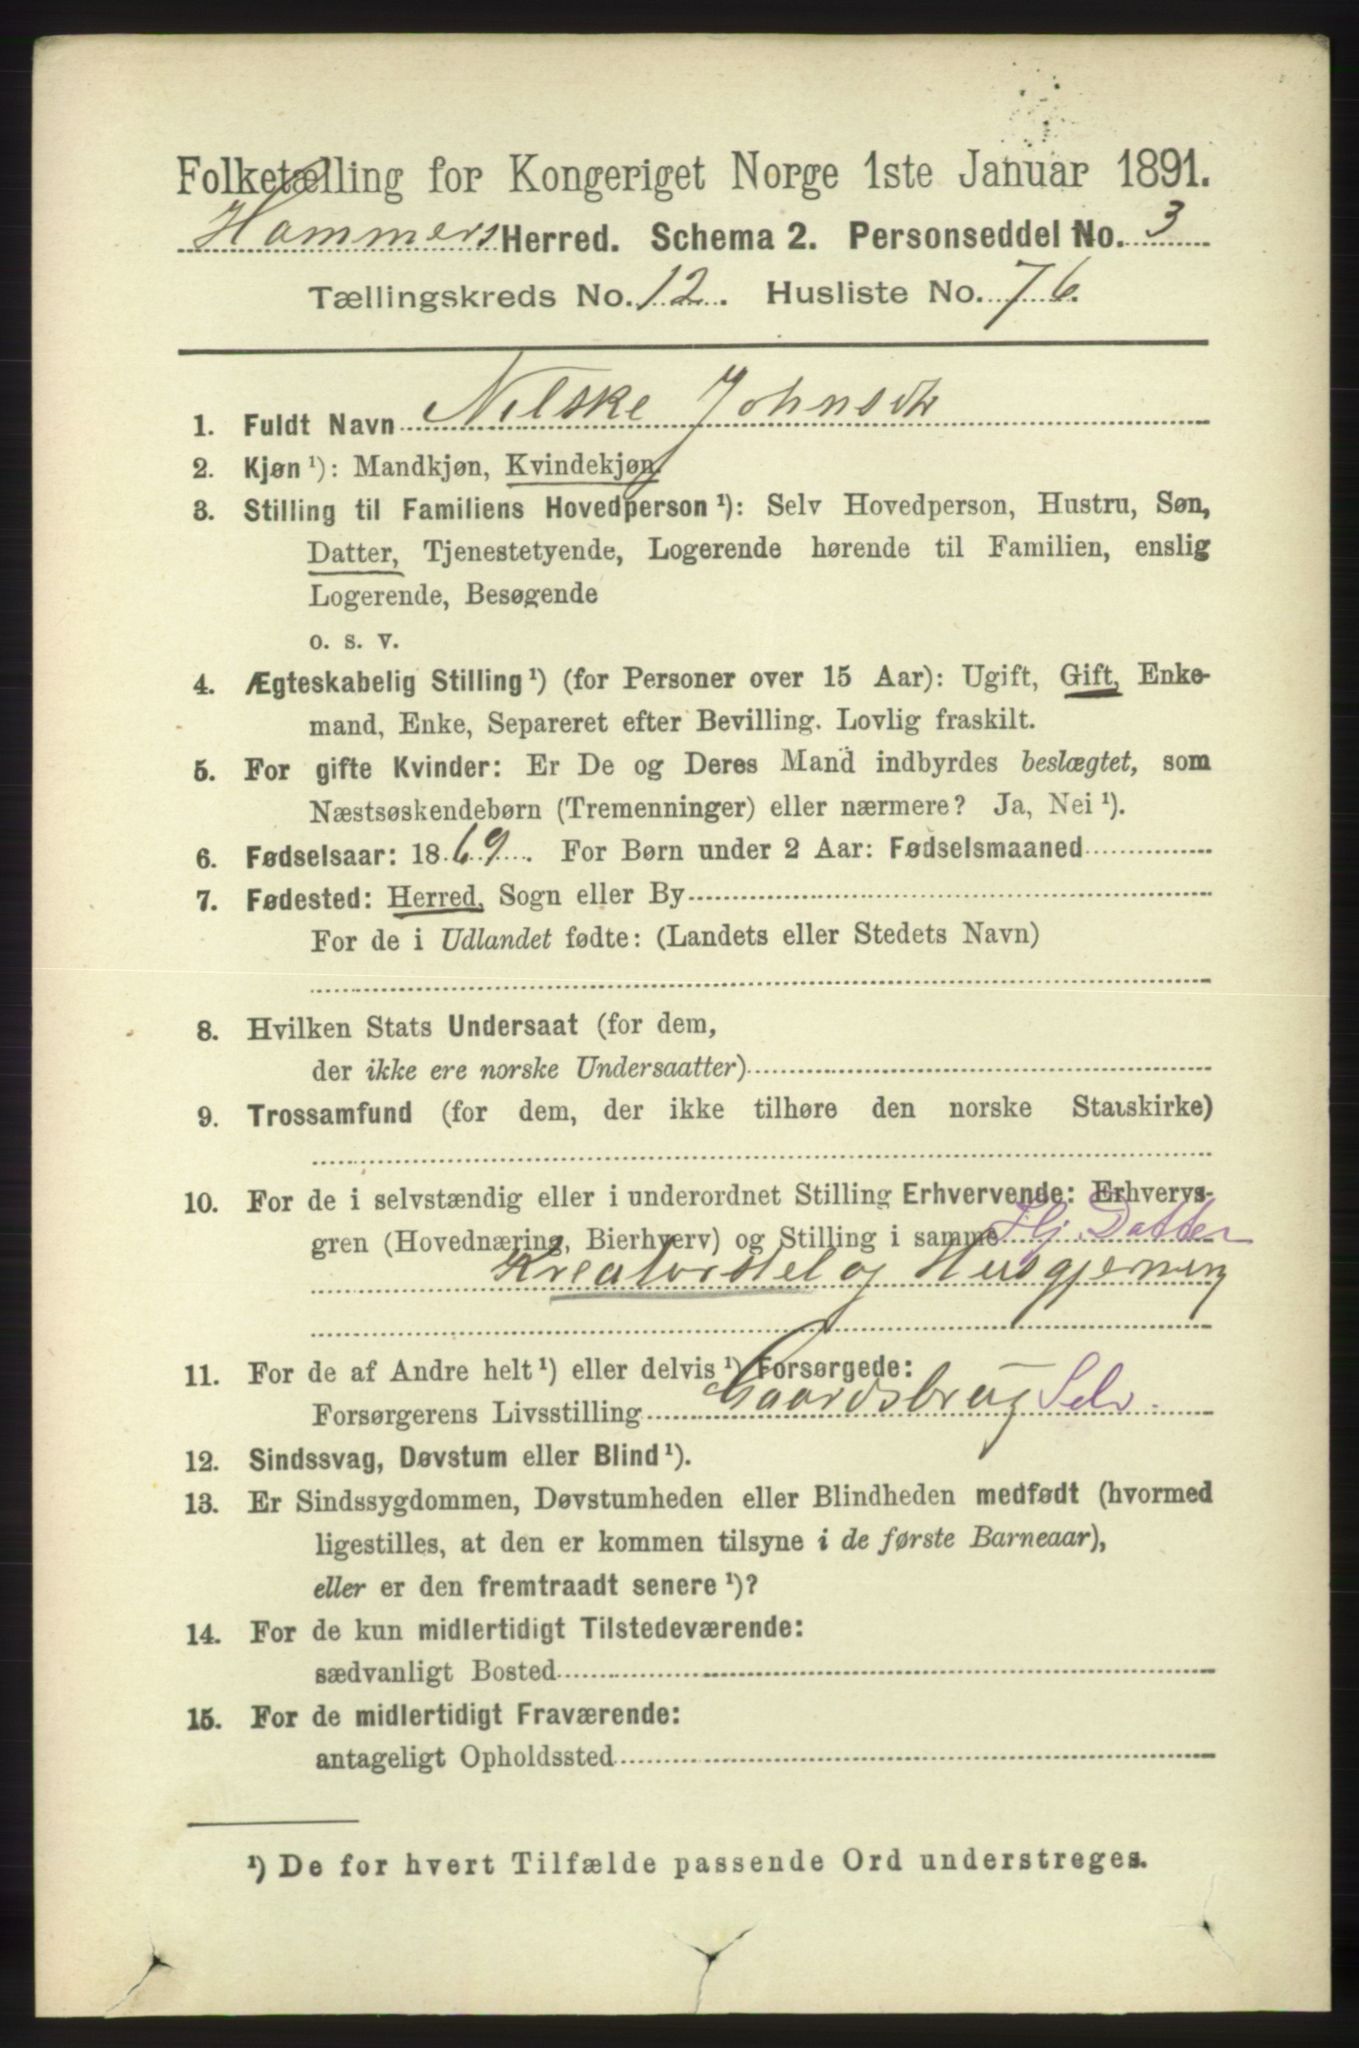 Folketælling for Kongeriget Norge 1ste Januar 1891.
Hammers Herred. Schema 2. Personseddel No. 3
Tællingskreds No. 12. Husliste No. 76.
1. Fuldt Navn Nilske Johnsdtr
2. Kjøn ¹): Mandkjøn, Kvindekjøn.
3. Stilling til Familiens Hovedperson ¹): Selv Hovedperson, Hustru, Søn,
Datter, Tjenestetyende, Logerende hørende til Familien, enslig
Logerende, Besøgende
o. s. v.
4. Ægteskabelig Stilling ¹) (for Personer over 15 Aar): Ugift, Gift, Enke-
mand, Enke, Separeret efter Bevilling. Lovlig fraskilt.
5. For gifte Kvinder: Er De og Deres Mand indbyrdes beslægtet, som
Næstsøskendebørn (Tremenninger) eller nærmere? Ja, Nei ¹).
6. Fødselsaar: 1869. For Børn under 2 Aar: Fødselsmaaned
7. Fødested: Herred, Sogn eller By
For de i Udlandet fødte: (Landets eller Stedets Navn)
8. Hvilken Stats Undersaat (for dem,
der ikke ere norske Undersaatter)
9. Trossamfund (for dem, der ikke tilhøre den norske Statskirke)
10. For de i selvstændig eller i underordnet Stilling Erhvervende: Erhvervs-
gren (Hovednæring, Bierhverv) og Stilling i samme Hj. Datter
Kreaturstel og Husgjerning
11. For de af Andre helt ¹) eller delvis ¹) Forsørgede:
Forsørgerens Livsstilling Gaardsbrug Selv.
12. Sindssvag, Døvstum eller Blind ¹).
13. Er Sindssygdommen, Døvstumheden eller Blindheden medfødt (hvormed
ligestilles, at den er kommen tilsyne i de første Barneaar),
eller er den fremtraadt senere ¹)?
14. For de kun midlertidigt Tilstedeværende:
sædvanligt Bosted
15. For de midlertidigt Fraværende:
antageligt Opholdssted
¹) De for hvert Tilfælde passende Ord understreges.